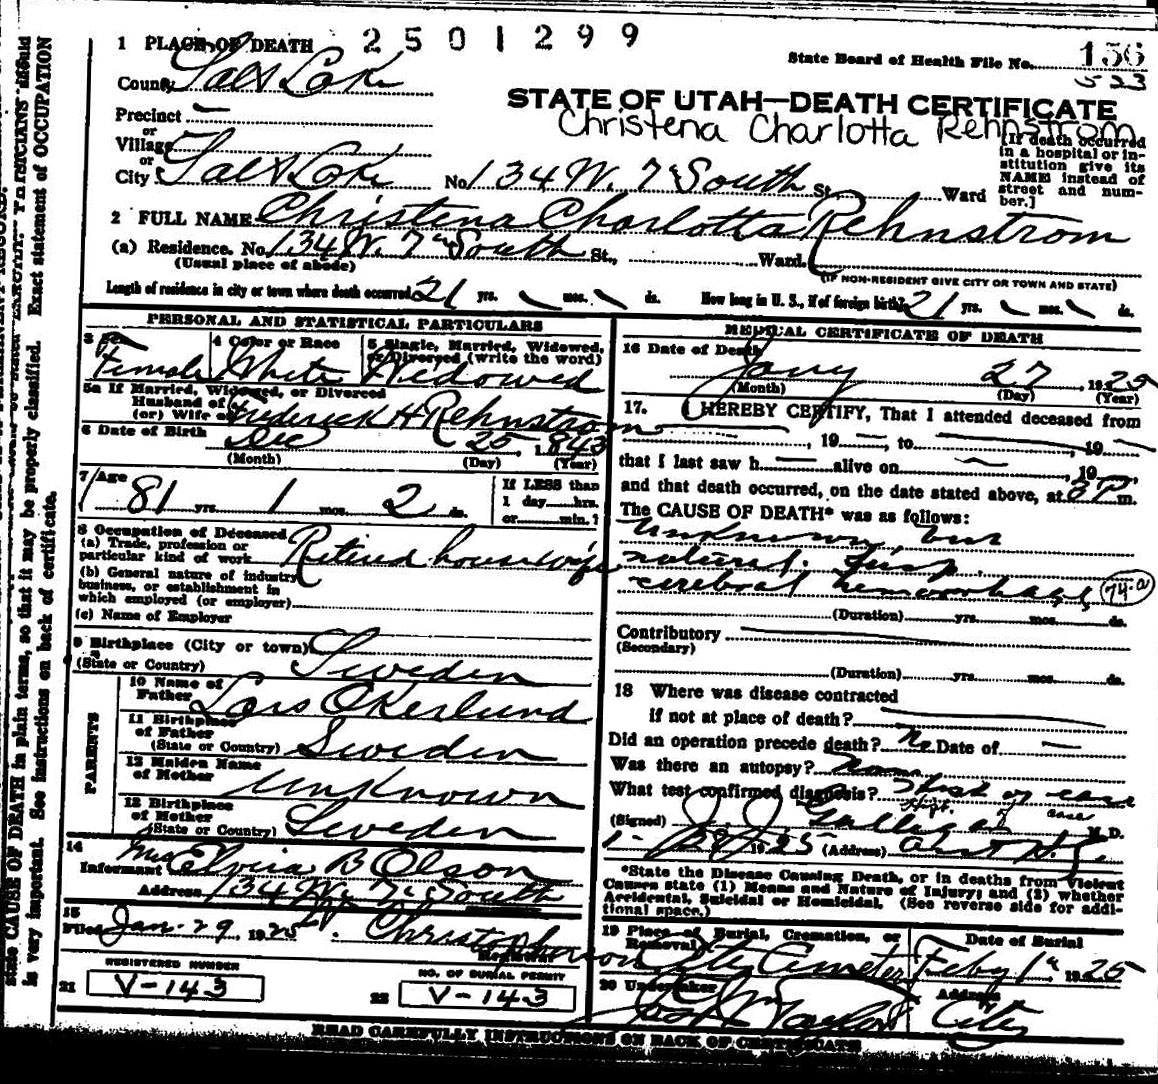 2501299
1 PLACE OF DEATH
State Board of Health File No. 156
523
County Salt Lake
STATE OF UTAH—DEATH CERTIFICATE
Christena Charlotta Rehnstrom
Precinct —
or
Village
or
City Salt Lake No. 134 W. 7 South St. Ward
[If death occurred in a hospital or institution give its NAME instead of street and number.]
2 FULL NAME Christena Charlotta Rehnstrom
(a) Residence. No. 134 W. 7 South St., Ward.
(Usual place of abode)
(IF NON-RESIDENT GIVE CITY OR TOWN AND STATE)
Length of residence in city or town where death occurred 21 yrs. mos. ds. How long in U. S., if of foreign birth? 21 yrs. mos. ds.
PERSONAL AND STATISTICAL PARTICULARS
3 Sex
Female
4 Color or Race
White
5 Single, Married, Widowed, or Divorced (write the word)
Widowed
5a If Married, Widowed, or Divorced
Husband of
(or) Wife of Frederick H Rehnstrom
6 Date of Birth Dec 25, 1843
(Month) (Day) (Year)
7 Age
81 yrs. 1 mos. 2 ds.
If LESS than
1 day hrs.
or min.?
8 Occupation of Deceased
(a) Trade, profession or
particular kind of work Retired housewife
(b) General nature of industry
business, or establishment in
which employed (or employer)
(c) Name of Employer
9 Birthplace (City or town)
(State or Country) Sweden
PARENTS
10 Name of
Father Lars Okerlund
11 Birthplace
of Father
(State or Country) Sweden
12 Maiden Name
of Mother Unknown
13 Birthplace
of Mother
(State or Country) Sweden
14
Informant Mrs Elvira B Olson
Address 134 W. 7 South
15
Filed Jan. 29, 1925 Christopherson
Registrar
REGISTERED NUMBER
21 V-143
NO. OF BURIAL PERMIT
22 V-143
MEDICAL CERTIFICATE OF DEATH
16 Date of Death
Jany 27, 1925
(Month) (Day) (Year)
17. I HEREBY CERTIFY, That I attended deceased from
, 19 — to , 19
that I last saw h — alive on , 19
and that death occurred, on the date stated above, at 8 P m.
The CAUSE OF DEATH* was as follows:
Unknown, but
natural.
cerebral hemorrhage 74-a
(Duration) yrs. mos. ds.
Contributory
(Secondary)
(Duration) yrs. mos. ds.
18 Where was disease contracted
if not at place of death?
Did an operation precede death? No Date of —
Was there an autopsy?
What test confirmed diagnosis? of case
Hist. of case
(Signed) J. J. Galligan M. D.
1-29, 1925 (Address)
*State the Disease Causing Death, or in deaths from Violent
Causes state (1) Means and Nature of Injury; and (2) whether
Accidental, Suicidal or Homicidal. (See reverse side for additional space.)
19 Place of Burial, Cremation, or
Removal
City Cemetery
Date of Burial
Feby 1st, 1925
20 Undertaker
Taylor
Address
City
READ CAREFULLY INSTRUCTIONS ON BACK OF CERTIFICATE
state CAUSE OF DEATH in plain terms, so that it may be properly classified. Exact statement of OCCUPATION
is very important. See instructions on back of certificate.